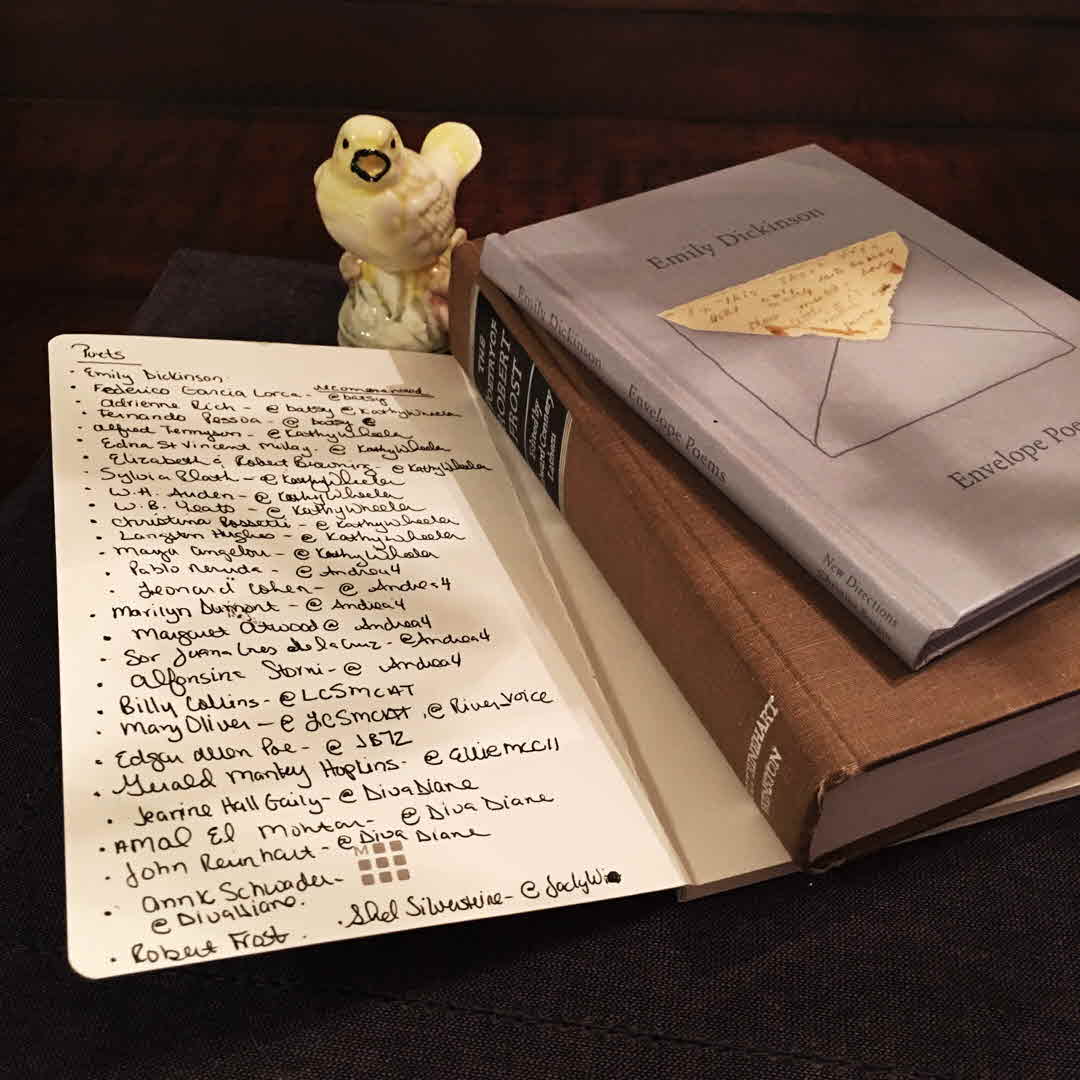 Poets
• Emily Dickinson
• Federico Garcia Lorca -
@batsy
• Adrienne Rich - @batsy @KathyWheeler
• Fernando Pessoa - @batsy
• Alfred Tennyson - @KathyWheeler
• Edna St Vincent Millay - @KathyWheeler
• Elizabeth & Robert Browning - @KathyWheeler
• Sylvia Plath - @KathyWheeler
• W.H. Auden - @KathyWheeler
• W.B. Yeats - @KathyWheeler
• Christina Rossetti - @KathyWheeler
• Langston Hughes - @KathyWheeler
• Maya Angelou - @KathyWheeler
• Pablo Neruda - @Andrea4
• Leonard Cohen - @Andrea4
• Marilyn Dumont - @Andrea4
• Margaret Atwood @Andrea4
• Sor Juana Ines de la Cruz - @Andrea4
• Alfonsina Storni - @Andrea4
• Billy Collins - @LCSMCAT
• Mary Oliver - @LCSMCAT, @RiverVoice
• Edgar Allen Poe - @JB72
• Gerald Manley Hopkins - @ElliEMCC11
• Jeanine Hall Gaily - @DivaDiane
• Amal El Mohtar - @DivaDiane
• John Reinhart - @Diva Diane
• Ann K Schwader -
@DivaDiane.
• Robert Frost .
• Shel Silverstine - @JaclyWi
M
THE
POETRY OF
ROBERT
FROST
Edited by
Edward Connery
Lathem
RINEHART
WINSTON
Emily Dickinson
Envelope Poems
New Directions
Emily Dickinson
Envelope Poe